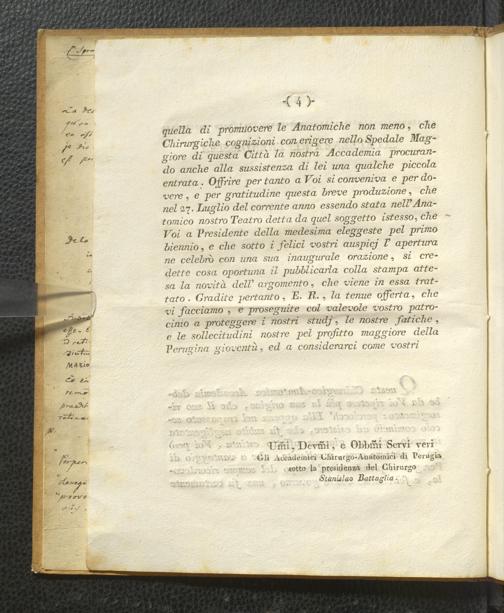 -( 4 )-
quella di promuovere le Anatomiche non meno, che
Chirurgiche cognizioni con erigere nello Spedale Mag-
giore di questa Città la nostra Accademia procuran-
do anche alla sussistenza di lei una qualche piccola
entrata. Offrire per tanto a Voi si conveniva e per do-
vere, e per gratitudine questa breve produzione, che
nel 27. Luglio del corrente anno essendo stata nell'Ana-
tomico nostro Teatro detta da quel soggetto istesso, che
Voi a Presidente della medesima eleggeste pel primo
biennio, e che sotto i felici vostri auspicj l'apertura
ne celebrò con una sua inaugurale orazione, si cre-
dette cosa oportuna il pubblicarla colla stampa atte-
sa la novità dell'argomento, che viene in essa trat-
tato. Gradite pertanto, E. R., la tenue offerta, che
vi facciamo, e proseguite col valevole vostro patro-
cinio a proteggere i nostri studj, le nostre fatiche,
e le sollecitudini nostre pel profitto maggiore della
Perugina gioventù, ed a considerarci come vostri
Umi, Devmi, e Obbmi Servi veri
Gli Accademici Chirurgo-Anatomici di Perugia
sotto la presidenza del Chirurgo
Stanislao Battaglia.